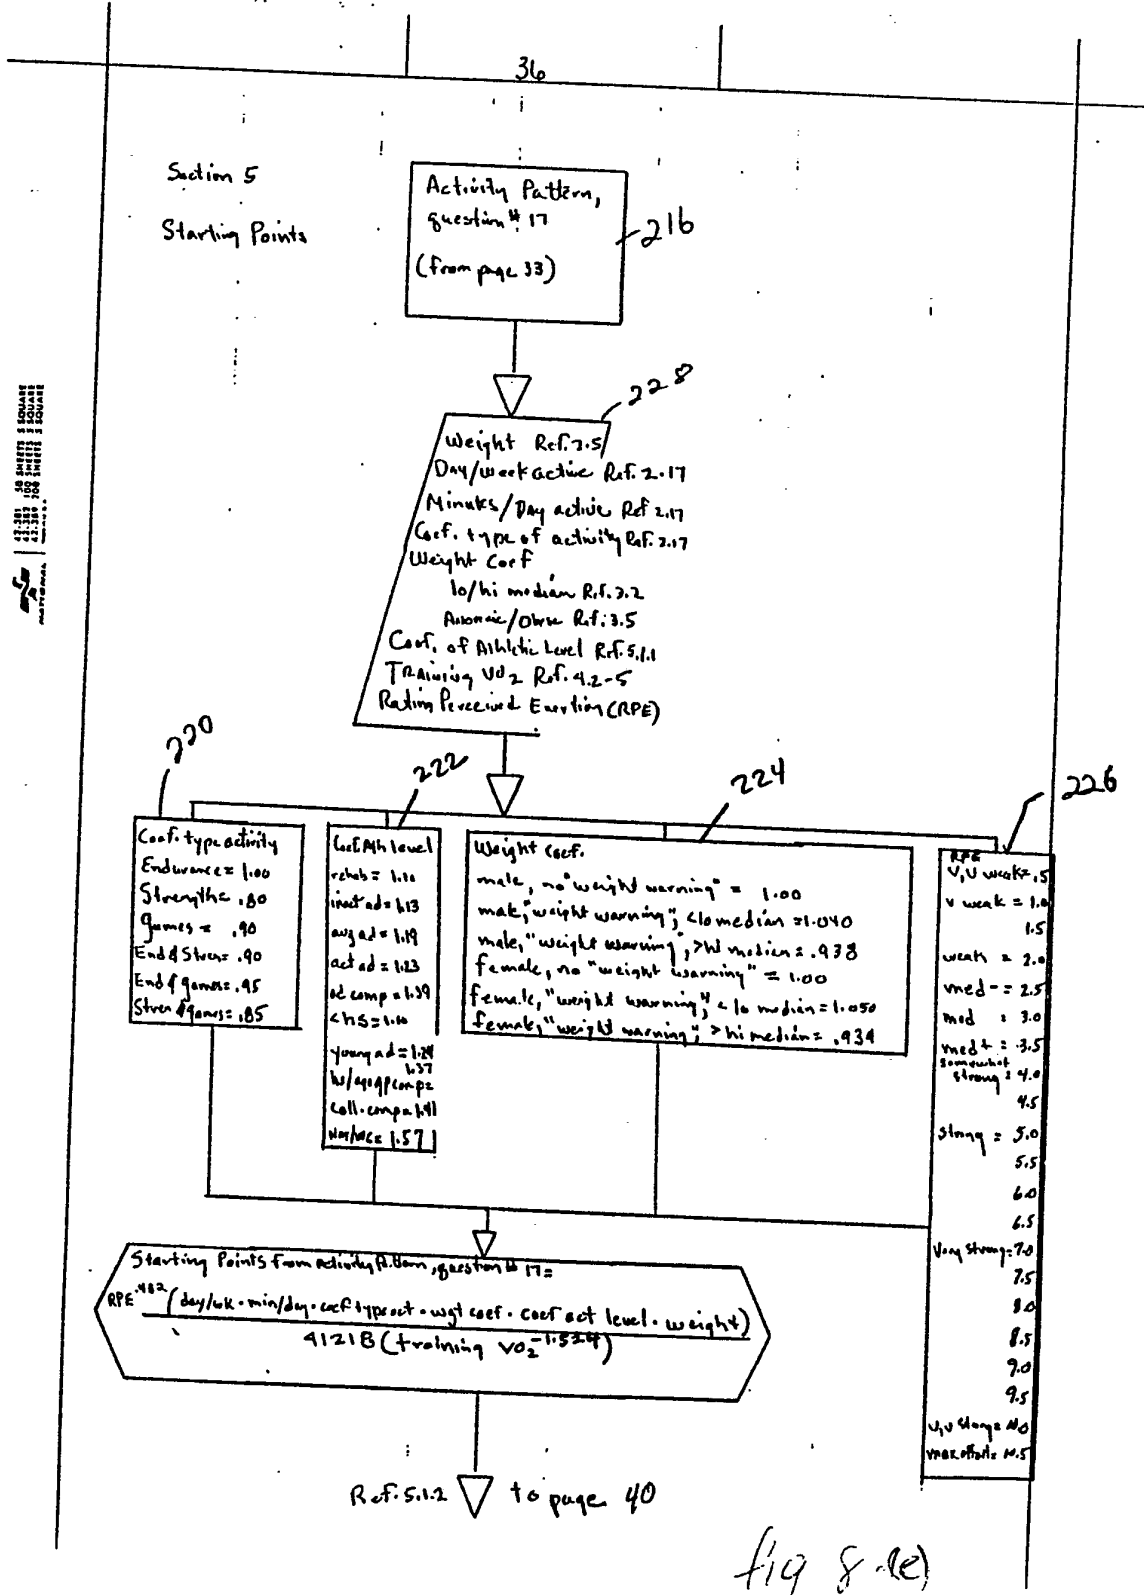 36
Section 5
Starting Points
Activity Pattern,
question # 17
(from page 33)
216
228
Weight Ref. 3.5
Day/week active Ref. 2.17
Minutes/Day active Ref 2.17
Coef. type of activity Ref. 2.17
Weight Coef
lo/hi median Ref. 3.2
/Obese Ref. 3.5
Coef. of Athletic Level Ref. 5.1.1
Training VO2 Ref. 4.2-5
Rating Perceived Exertion (RPE)
220
222
224
226
Coef. type activity
Endurance = 1.00
Strength = .80
games = .90
End & Stren = .90
End & games = .95
Stren & games = .85
Coef. Ath level
rehab = 1.10
inact ad = 1.13
avg ad = 1.19
act ad = 1.23
ad comp = 1.39
<hs = 1.10
young ad = 1.24
1.37
hs/ comp =
coll. comp = 1.41
= 1.57
Weight Coef.
male, no "weight warning" = 1.00
male, "weight warning", <lo median = 1.040
male, "weight warning", >hi median = .938
female, no "weight warning" = 1.00
female, "weight warning", < lo median = 1.050
female, "weight warning", > hi median = .934
RPE
V,V weak = .5
v weak = 1.0
1.5
weak = 2.0
med - = 2.5
mod = 3.0
med + = 3.5
somewhat
strong = 4.0
4.5
strong = 5.0
5.5
6.0
6.5
Very Strong = 7.0
7.5
8.0
8.5
9.0
9.5
V,V Strong =
max effort =
Starting Points from Activity Pattern, question # 17 =
RPE (day/wk • min/day • coef type act • wgt coef • coef act level • weight)
(training VO2 -1.524)
Ref. 5.1.2 to page 40
fig 8
42-381 50 SHEETS 5 SQUARE
42-382 100 SHEETS 5 SQUARE
42-389 200 SHEETS 5 SQUARE
NATIONAL